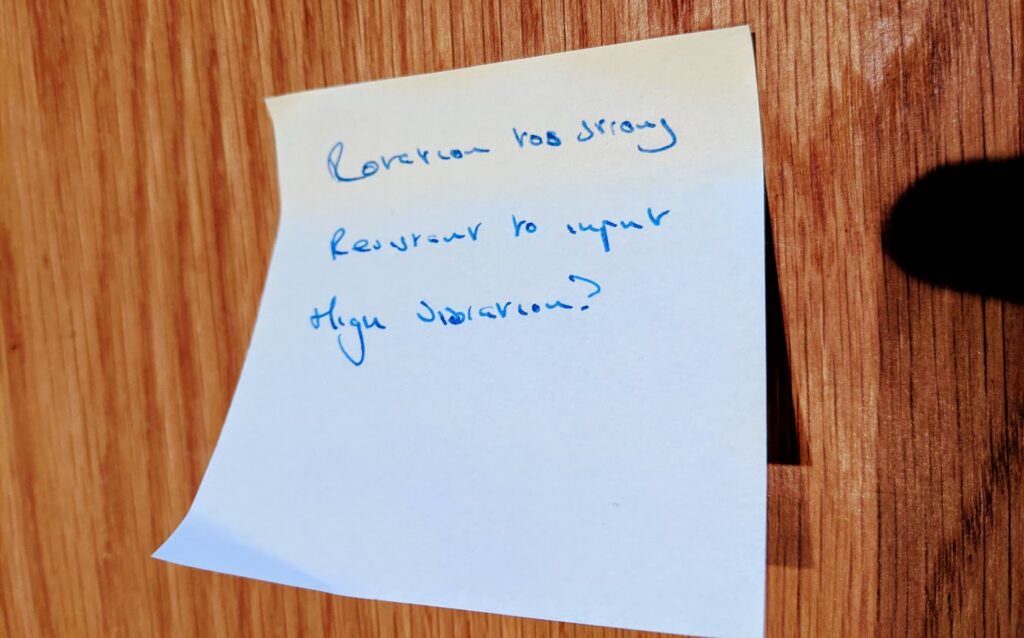 Rotation too strong
Resistant to input
High vibration?